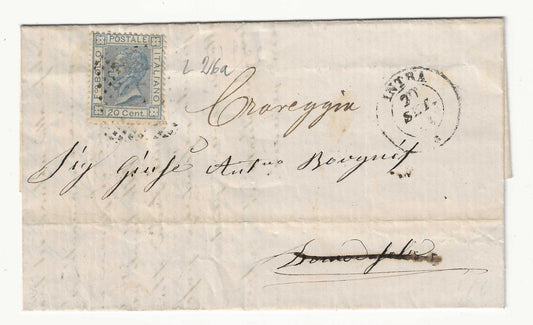 FRANCO BOLLO POSTALE ITALIANO
20 Cent.
L 26a
Craveggia
INTRA
20
SET.
Sig Giusê Ant.no
Domodossola